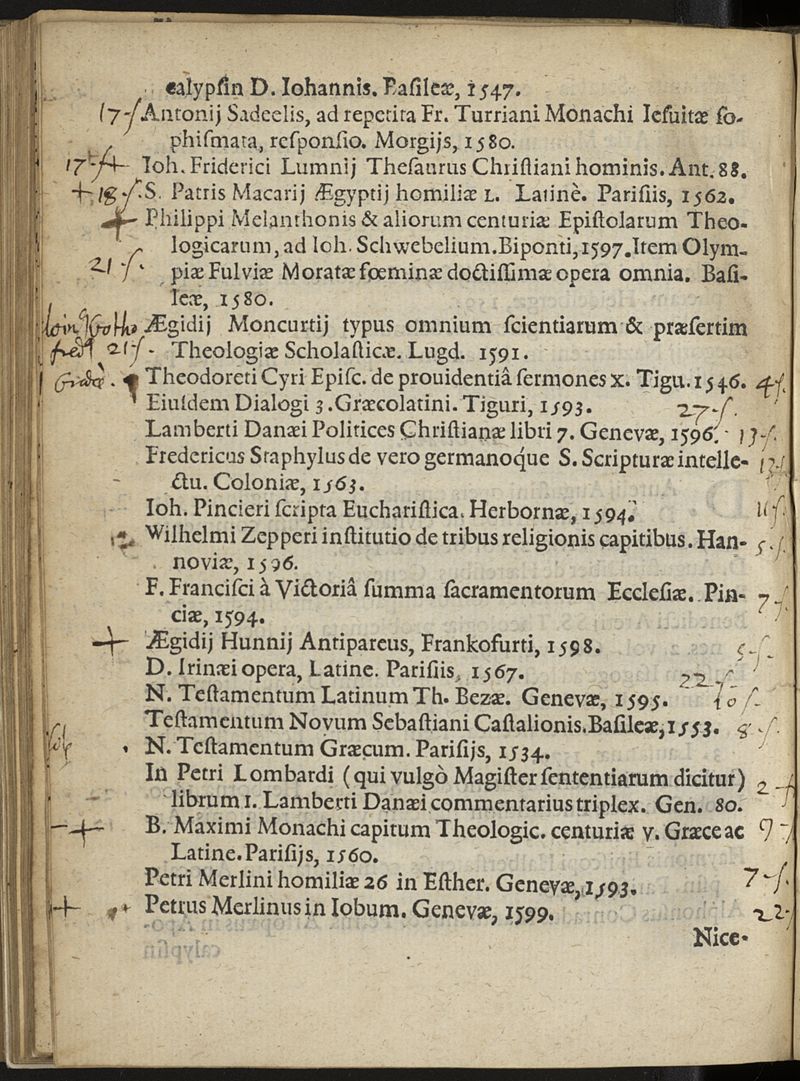 calypſin D. Iohannis. Baſileæ, 1547.
17-ſ Antonij Sadeelis, ad repetita Fr. Turriani Monachi Ieſuitæ ſo-
phiſmata, reſponſio. Morgijs, 1580.
17-ſ + Ioh. Friderici Lumnij Theſaurus Chriſtiani hominis. Ant. 88.
+ 18-ſ. S. Patris Macarij Ægyptij homiliæ L. Latinè. Pariſiis, 1562.
+ Philippi Melanthonis & aliorum centuriæ Epiſtolarum Theo-
logicarum, ad Ioh. Schwebelium. Biponti, 1597. Item Olym-
21-ſ. piæ Fulviæ Moratæ fœminæ doctiſſimæ opera omnia. Baſi-
leæ, 1580.
Ægidij Moncurtij typus omnium ſcientiarum & præſertim
21-ſ - Theologiæ Scholaſticæ. Lugd. 1591.
Theodoreti Cyri Epiſc. de prouidentiâ ſermones x. Tigu. 1546. 4-ſ.
Eiuſdem Dialogi 3. Græcolatini. Tiguri, 1593. 27-ſ.
Lamberti Danæi Politices Chriſtianæ libri 7. Genevæ, 1596. 13-ſ.
Fredericus Staphylus de vero germanoque S. Scripturæ intelle- 13-ſ
ctu. Coloniæ, 1563.
Ioh. Pincieri ſcripta Euchariſtica. Herbornæ, 1594. 11-ſ.
Wilhelmi Zepperi inſtitutio de tribus religionis capitibus. Han- 5-ſ.
noviæ, 1596.
F. Franciſci à Victoriâ ſumma ſacramentorum Eccleſiæ. Pin- 7-ſ
ciæ, 1594.
+ Ægidij Hunnij Antipareus, Frankofurti, 1598. 5-ſ
D. Irinæi opera, Latine. Pariſiis, 1567. 22-ſ
N. Teſtamentum Latinum Th. Bezæ. Genevæ, 1595. 10 ſ.
Teſtamentum Novum Sebaſtiani Caſtalionis. Baſileæ, 1553. 8-ſ.
N. Teſtamentum Græcum. Pariſijs, 1534.
In Petri Lombardi (qui vulgò Magiſter ſententiarum dicitur) 2-ſ
librum 1. Lamberti Danæi commentarius triplex. Gen. 80.
-+ B. Maximi Monachi capitum Theologic. centuriæ v. Græce ac 9-
Latine. Pariſijs, 1560.
Petri Merlini homiliæ 26 in Eſther. Genevæ, 1593. 7-ſ.
+ Petrus Merlinus in Iobum. Genevæ, 1599. 22-
Nice-